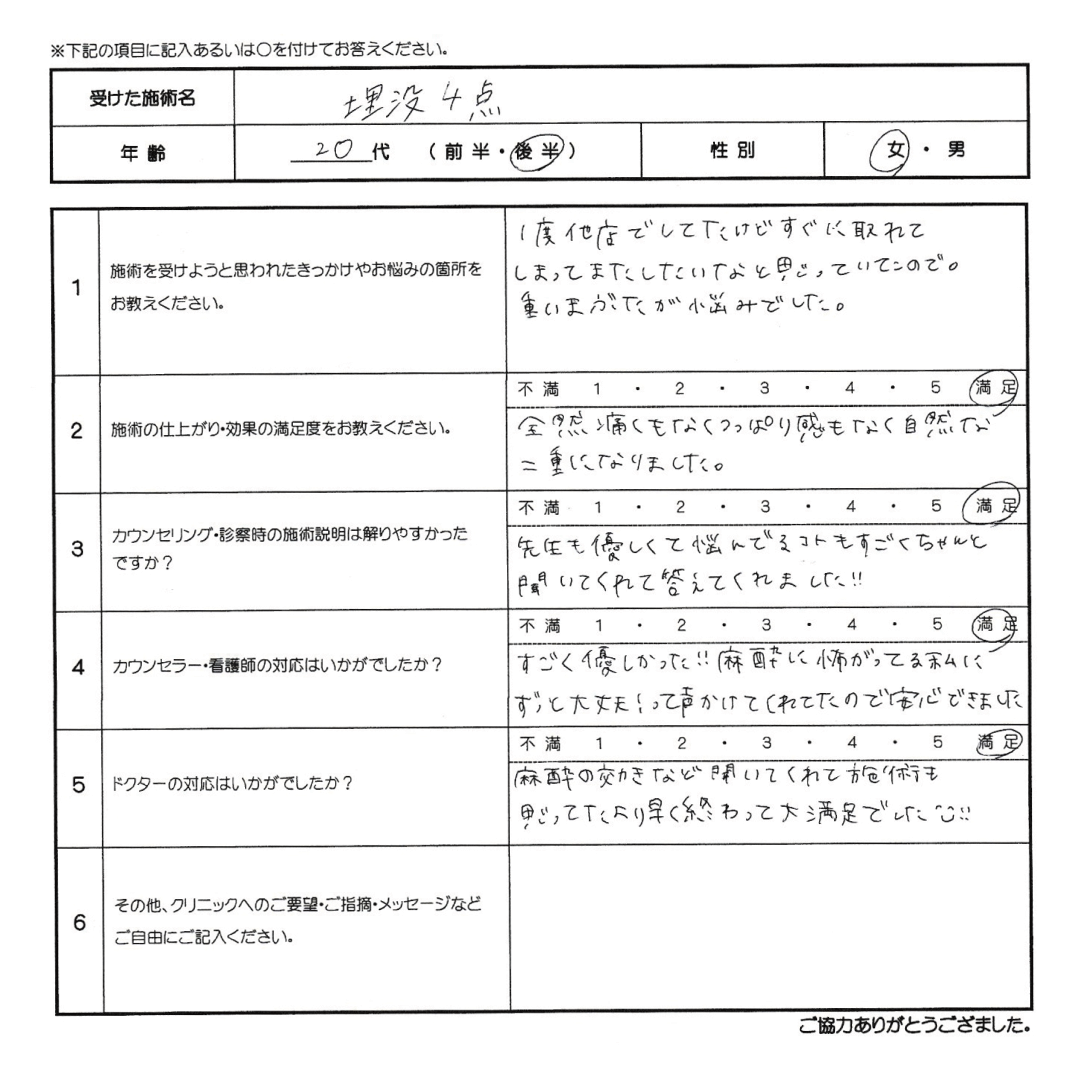 ※下記の項目に記入あるいは○を付けてお答えください。
受けた施術名 埋没4点
年齢 20代 (前半・後半) 性別 女・男
1 施術を受けようと思われたきっかけやお悩みの箇所をお教えください。
1度他店でしてたけどすぐに取れて
しまってまたしたいなと思っていたので。
重いまぶたが悩みでした。
2 施術の仕上がり・効果の満足度をお教えください。
不満 1 ・ 2 ・ 3 ・ 4 ・ 5 満足
全然痛くもなくつっぱり感もなく自然な
二重になりました。
3 カウンセリング・診察時の施術説明は解りやすかったですか?
不満 1 ・ 2 ・ 3 ・ 4 ・ 5 満足
先生も優しくて悩んでるコトもすごくちゃんと
聞いてくれて答えてくれました!!
4 カウンセラー・看護師の対応はいかがでしたか?
不満 1 ・ 2 ・ 3 ・ 4 ・ 5 満足
すごく優しかった!!麻酔に怖がってる私に
ずっと大丈夫!って声かけてくれてたので安心できました
5 ドクターの対応はいかがでしたか?
不満 1 ・ 2 ・ 3 ・ 4 ・ 5 満足
麻酔の効きなど聞いてくれて施術も
思ってたより早く終わって大満足でした!!
6 その他、クリニックへのご要望・ご指摘・メッセージなどご自由にご記入ください。
ご協力ありがとうござました。